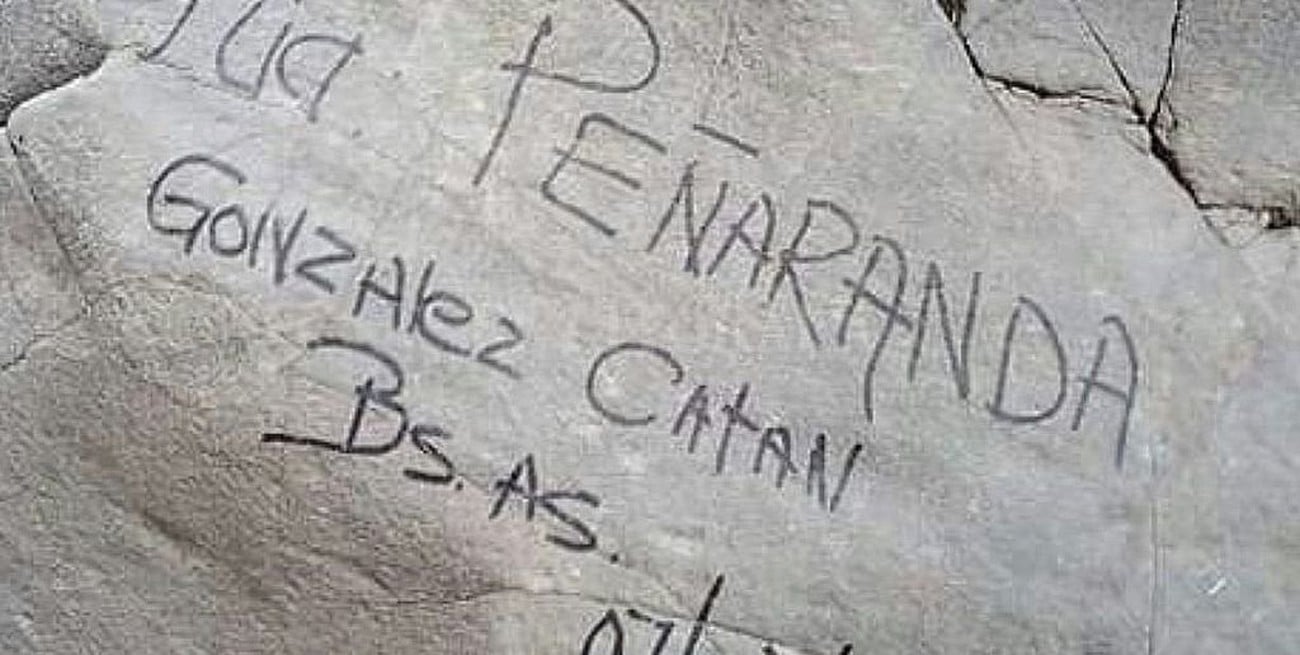 PEÑARANDA
GONZAlez CAtAN
Bs. As.